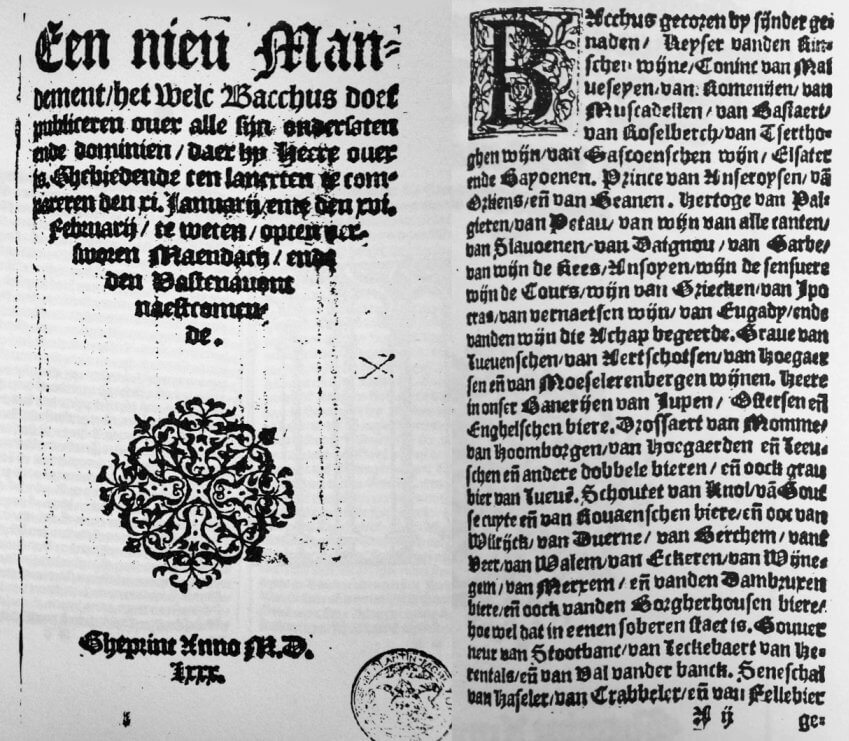 Een nieu̅ Man-
dement/het welc Bacchus doet
publiceren ouer alle sijn ondersaten
ende dominien/daer hy Heere ouer
is. Ghebiedende een lancrten te com-
pareren den xi. Januarij/ende den xvi.
Februarij/te weten/opten ver-
sworen Maendach/ende
den Vastenauont
naestcomen-
de.
Gheprint Anno M.D.
lxxx.
BAcchus gecoren by sijnder ge-
naden/Keyser vanden Rin-
schen wijne/Coninc van Mal
ueseyen/van Romenijen/van
Muscadellen/van Bastaert/
van Roselberch/van Tsertho-
ghen wijn/van Gascoenschen wijn/Elsater
ende Bayoenen. Prince van Anseroysen/va̅
Orliens/en̅ van Beanen. Hertoge van Pal-
gieten/van Petau/van wijn van alle canten/
van Slauoenen/van Baignou/van Garbe/
van wijn de Rees/Ansoyen/wijn de sensuere
wijn de Cours/wijn van Griecken/van Ipo
cras/van vernaetsen wijn/van Eugady/ende
vanden wijn die Achap begeerde. Graue van
Lueuenschen/van Aertschotsen/van Hoegaer
sen en̅ van Moeselerenbergen wijnen. Heere
in onser Banerijen van Jupen/Oostersen en̅
Enghelschen biere. Drossaert van Momme/
van Hoomborgen/van Hoegaerden en̅ Leeu-
schen en̅ andere dobbele bieren/en̅ oock grau
bier van Lueue̅. Schoutet van Knol/va̅ Gout
se cuyte en̅ van Rouaenschen biere/en̅ ooc van
Wilrijck/van Duerne/van Berchem/vant
Veer/van Walem/van Eckeren/van Wijne-
gem/van Merxem/en̅ vanden Dambruxen
biere/en̅ oock vanden Borgherhousen biere/
hoe wel dat in eenen soberen staet is. Gouuer
neur van Stootbanc/van Leckebaert van He-
rentals/en̅ van Val vander banck. Seneschal
van Haseler/van Crabbeler/en̅ van Fellebier
A ij ge-